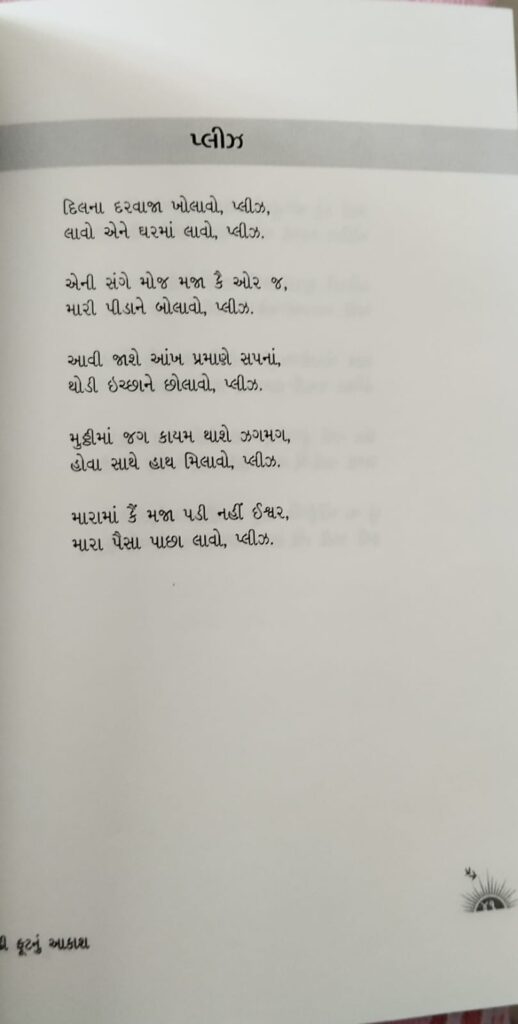 પ્લીઝ
દિલના દરવાજા ખોલાવો, પ્લીઝ,
લાવો એને ઘરમાં લાવો, પ્લીઝ.
એની સંગે મોજ મજા કૈ ઓર જ,
મારી પીડાને બોલાવો, પ્લીઝ.
આવી જાશે આંખ પ્રમાણે સપનાં,
થોડી ઇચ્છાને છોલાવો, પ્લીઝ.
મુઠ્ઠીમાં જગ કાયમ થાશે ઝગમગ,
હોવા સાથે હાથ મિલાવો, પ્લીઝ.
મારામાં કૈં મજા પડી નહીં ઈશ્વર,
મારા પૈસા પાછા લાવો, પ્લીઝ.
ફૂટનું આકાશ